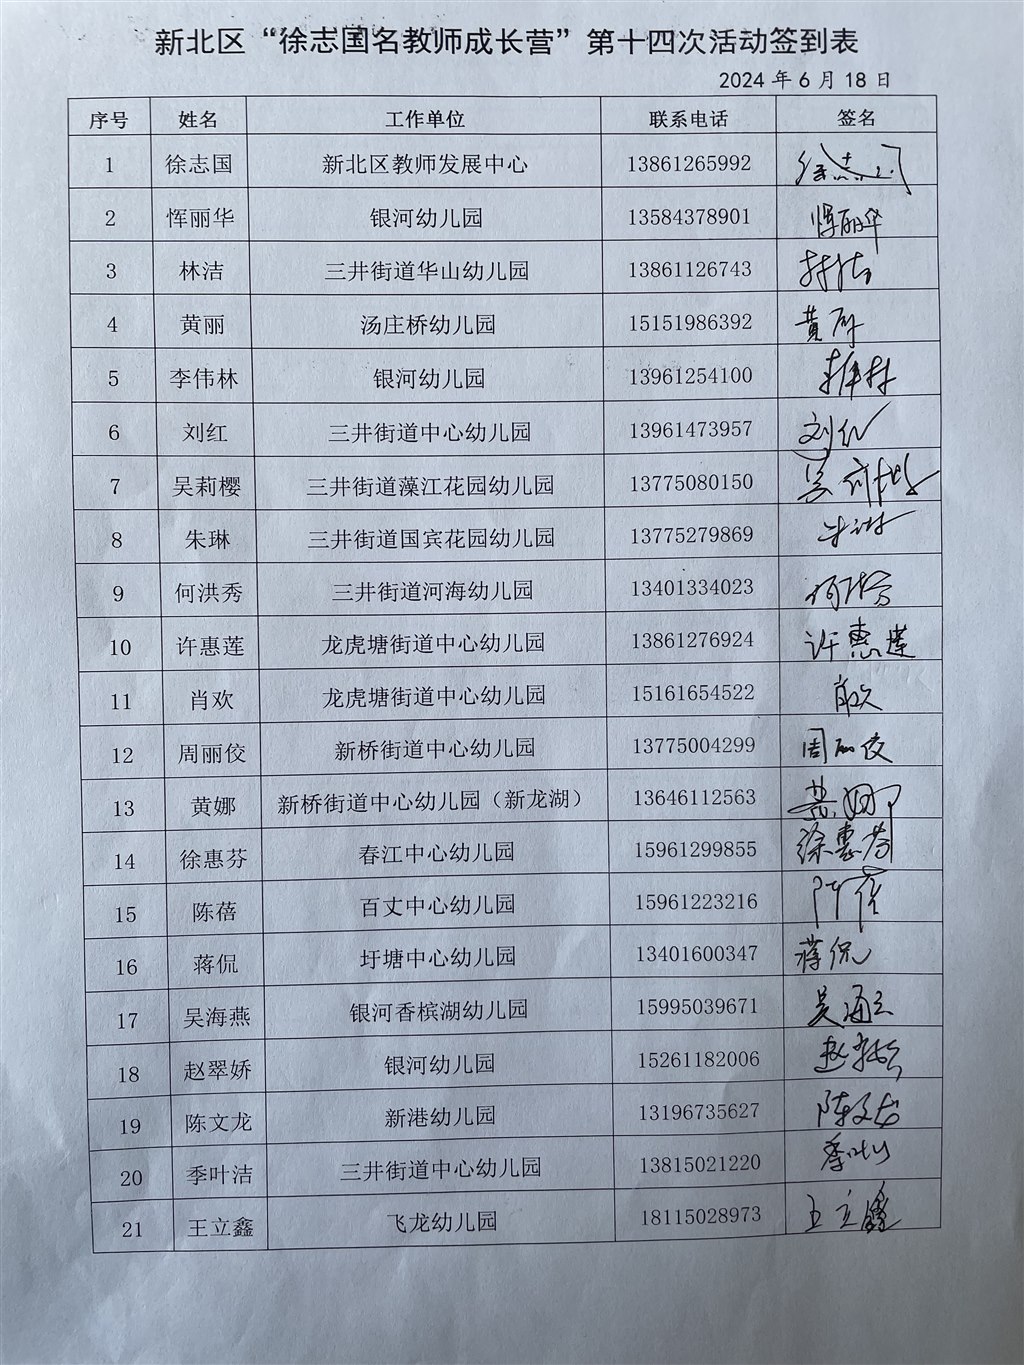 新北区“徐志国名教师成长营”第十四次活动签到表
2024 年 6 月 18 日
序号 姓名 工作单位 联系电话 签名
1 徐志国 新北区教师发展中心 13861265992 徐志国
2 恽丽华 银河幼儿园 13584378901 恽丽华
3 林洁 三井街道华山幼儿园 13861126743 林洁
4 黄丽 汤庄桥幼儿园 15151986392 黄丽
5 李伟林 银河幼儿园 13961254100 李伟林
6 刘红 三井街道中心幼儿园 13961473957 刘红
7 吴莉樱 三井街道藻江花园幼儿园 13775080150 吴莉樱
8 朱琳 三井街道国宾花园幼儿园 13775279869 朱琳
9 何洪秀 三井街道河海幼儿园 13401334023 何洪秀
10 许惠莲 龙虎塘街道中心幼儿园 13861276924 许惠莲
11 肖欢 龙虎塘街道中心幼儿园 15161654522 肖欢
12 周丽佼 新桥街道中心幼儿园 13775004299 周丽佼
13 黄娜 新桥街道中心幼儿园（新龙湖） 13646112563 黄娜
14 徐惠芬 春江中心幼儿园 15961299855 徐惠芬
15 陈蓓 百丈中心幼儿园 15961223216 陈蓓
16 蒋侃 圩塘中心幼儿园 13401600347 蒋侃
17 吴海燕 银河香槟湖幼儿园 15995039671 吴海燕
18 赵翠娇 银河幼儿园 15261182006 赵翠娇
19 陈文龙 新港幼儿园 13196735627 陈文龙
20 季叶洁 三井街道中心幼儿园 13815021220 季叶洁
21 王立鑫 飞龙幼儿园 18115028973 王立鑫